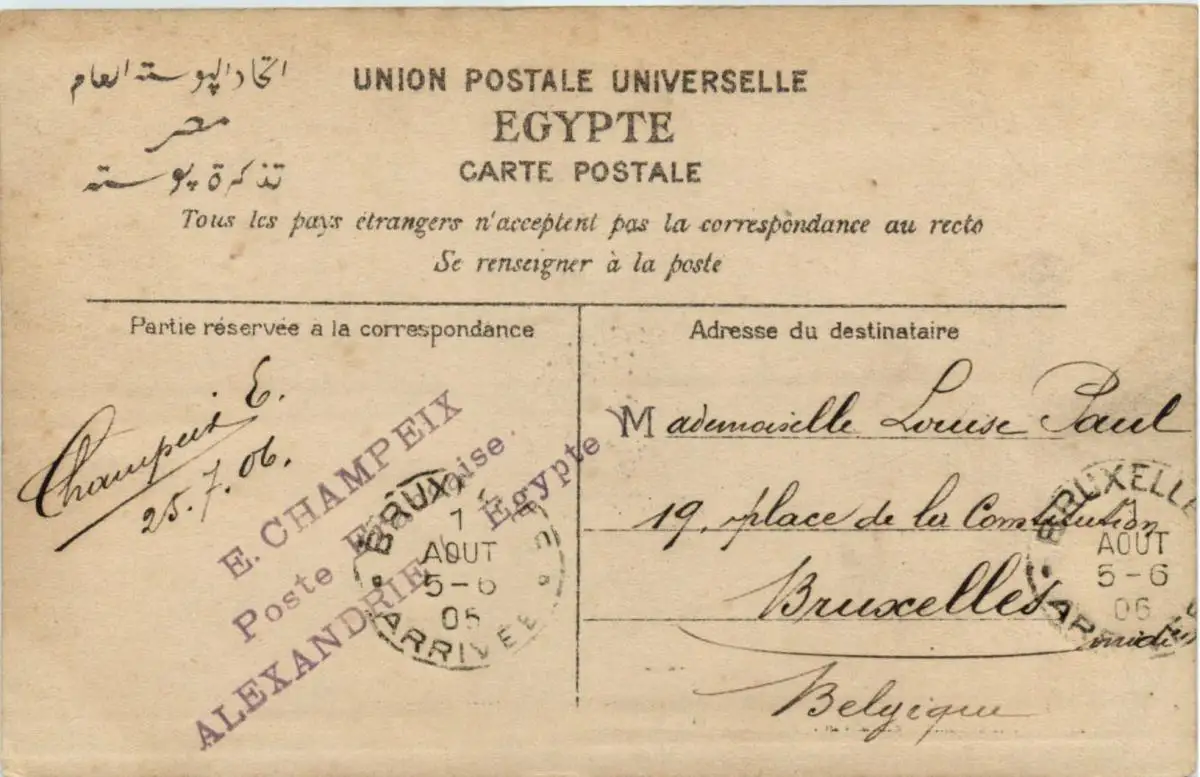 اتحاد البوسته العام
مصر
تذكرة بوسته
UNION POSTALE UNIVERSELLE
EGYPTE
CARTE POSTALE
Tous les pays étrangers n'acceptent pas la correspondance au recto
Se renseigner à la poste
Partie réservée a la correspondance
Champeix E.
25.7.06.
E. CHAMPEIX
Poste Française.
ALEXANDRIE Egypte
BRUXELLES
1
AOUT
5-6
06
ARRIVÉE
Adresse du destinataire
Mademoiselle Louise Paul
19, place de la Constitution
Bruxelles
midi
Belgique
BRUXELLE
1
AOUT
5-6
06